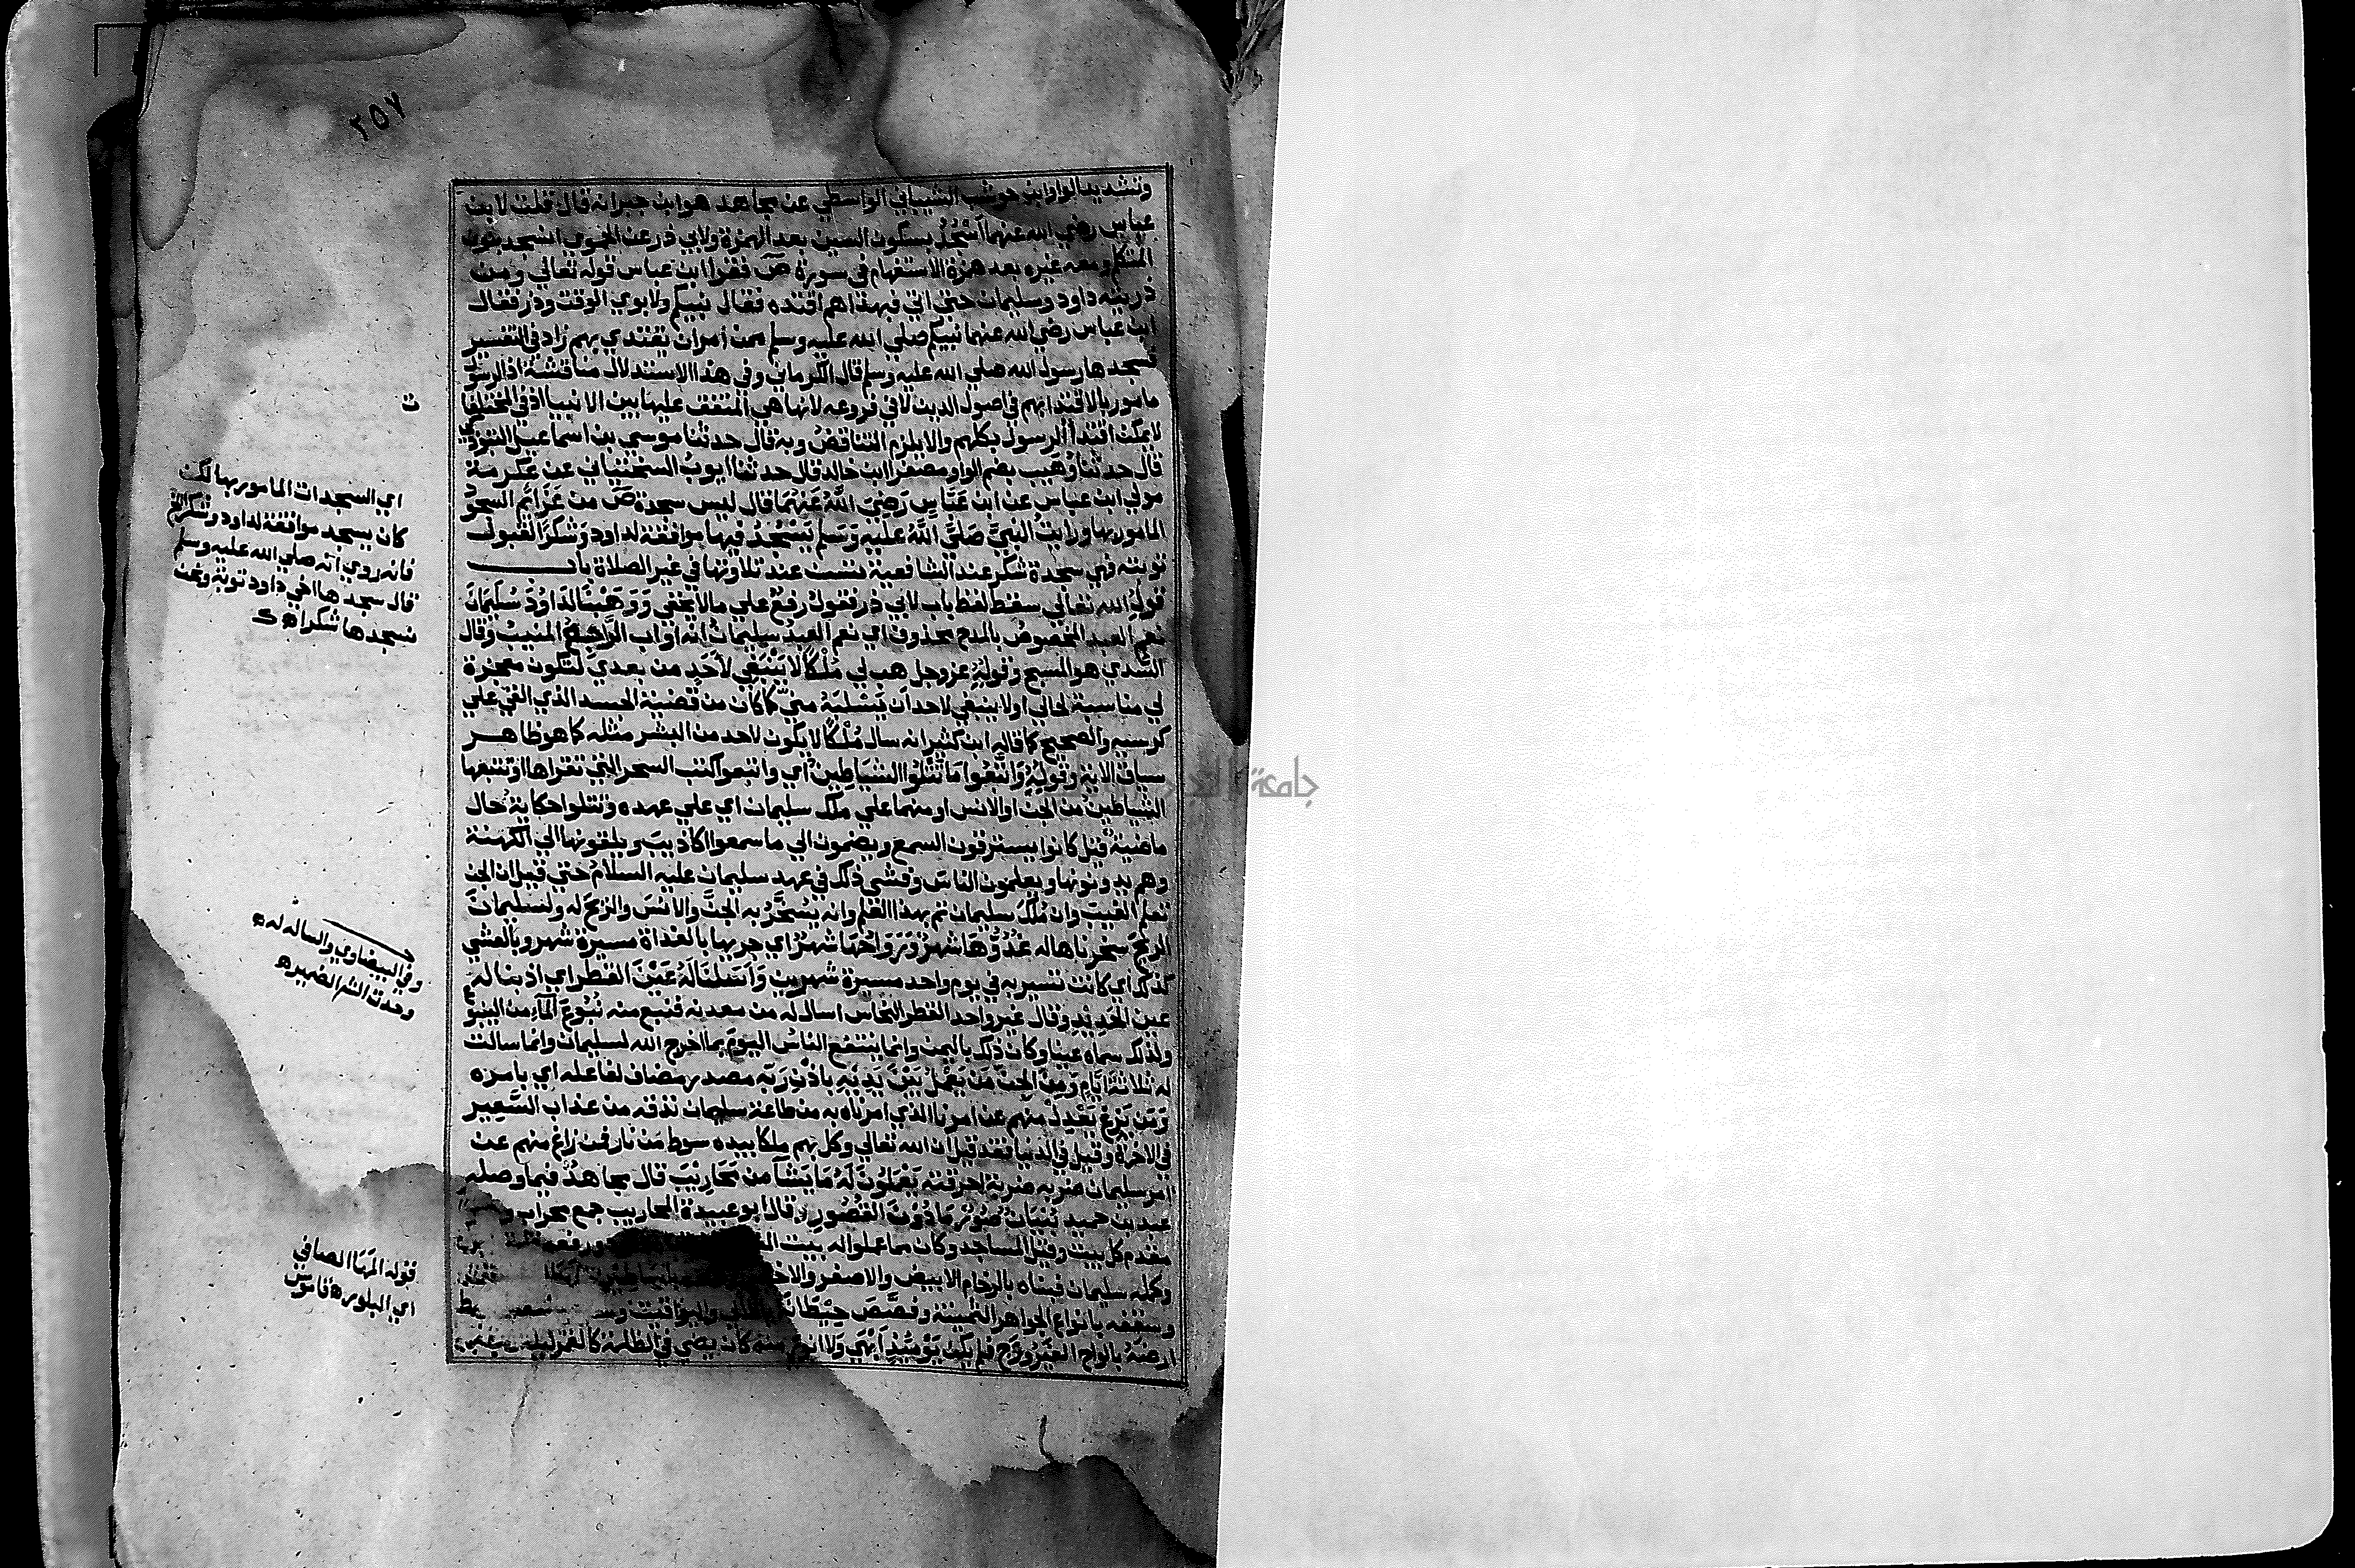 ٢٥٧
وتشديد الواو ابن حوشب الشيباني الواسطي عن مجاهد هو ابن جبر انه قال قلت لابن
عباس رضي الله عنهما أنسْجُدُ بسكون السين بعد الهمزة ولابي ذر عن الحموي انسجد بنون
المتكلم ومعه غيره بعد همزة الاستفهام في سورة صٓ فقرا ابن عباس قوله تعالي ومن
ذريته داود وسليمان حتي اتي فبهداهم اقتده فقال نبيكم ولابوي الوقت وذر فقال
ابن عباس رضي الله عنهما نبيكم صلي الله عليه وسلم ممن أمر ان يقتدي بهم زاد في التفسير
فسجدها رسول الله صلي الله عليه وسلم قال الكرماني وفي هذا الاستدلال مناقشة اذ الرسول
مامور بالاقتدا بهم في اصول الدين لا في فروعه لانها هي المتفق عليها بين الانبيا اذ في المختلفا
ت
لا يمكن اقتدا الرسول بكلهم والا يلزم التناقض وبه قال حدثنا موسي بن اسماعيل التبوذكي
قال حدثنا وُهَيب بضم الواو مصغرا ابن خالد قال حدثنا ايوبُ السختياني عن عكرمة
مولي ابن عباس عن ابن عَبَّاسٍ رَضِيَ اللَّهُ عَنْهُمَا قال ليس سجدة صٓ من عَزَائِم السجود
المامور بها ورايتُ النبيَّ صَلَّيَ اللَّهُ عليه وَسَلم يَسْجُدُ فيها موافقة لداود وَشكرًا لقبول
توبته فهي سجدة شكر عند الشافعية تسن عند تلاوتها في غير الصلاة بابـــــ
قولِ الله تعالي سقط لفظ باب لابي ذر فقولُ رفعٌ علي ما لا يخفي وَوَهَبْنَا لدَاوُدَ سُلَيْمَانَ
نعم العبد المخصوص بالمدح محذوف اي نعم العبد سليمانُ انه اواب الرَّاجِعُ المنيبُ وقال
السُّدي هو المسبح وقولِهِ عز وجل هب لي مُلْكًا لا يَنْبَغِي لأَحَدٍ من بعدي لتكون معجزة
لي مناسبة لحالي او لا ينبغي لاحد اَن يَسْلبَهُ مِنيِّ كما كان من قضية الجسد الذي القي علي
كرسيه والصحيح كما قاله ابن كثير انه سال مُلْكًا لا يكون لاحد من البشر مثله كما هو ظاهـــر
سياق الاية وقولِهِ وَاتَّبَعُوا مَا تَتْلُوا الشيَاطِينُ اي واتبعوا كتب السحر التي تقراها او تتبعها
الشياطين من الجن او الانس او منهما علي ملك سليمان اي علي عهده وتتلوا حكاية حال
ماضية قيل كانوا يسترقون السمع ويضمون الي ما سمعوا اكاذيبَ ويلقونها الي الكهنة
وهم يدونونها ويعلمون الناس وفشي ذلك في عهد سليمان عليه السلام حتي قيل ان الجن
تعلم الغيب وان مُلْكَ سليمان تم بهذا العلم وانه يُسَخَّرُ به الجنَّ والانسَ والريحَ له ولسليمانَ
الريحَ سخرناها له غُدُوُّهَا شهرٌ وَرَوَاحُهَا شهرٌ اي جريها بالغداة مسيرة شهر وبالعشي
كذلك اي كانت تسير به في يوم واحد مسيرة شهرين وَأَسَلْنَا لَهُ عَيْنَ القطر اي اذبنا له
عين الحَدِيدِ وقال غير واحد القطر النحاس اسال له من معدنه فنبع منه نُبُوعَ المآءِ من الينبوع
ولذلك سماه عينا وكان ذلك باليمن وانما ينتفع الناسُ اليومَ بما اخرج الله لسليمان وانما سالت
له ثلاثة أيَّامٍ وَمِنَ الجِنِّ مَن يَعْمَلُ بَيْنَ يَدَيْهِ باذْنِ رَبِّه مصدر مضاف لفاعله اي بامره
وَمَن يَزِغْ يَعْدِلْ مِنهم عن امرنا الذي امرناه به من طاعة سليمان نذقه من عذاب السَّعير
في الاخرة وقيل في الدنيا فقد قيل ان الله تعالي وكل بهم ملكا بيده سوط مَن نار فمن زاغ منهم عن
امر سليمان ضربه ضربة احرقته يَعْمَلُونَ لَهُ مَا يَشَآ من مَحَارِيْبَ قال مجاهدٌ فيما وصله
عبد بن حميد بُنْيَانٌ صُوْرٌ مَا دُوْنَ القُصُورِ وقال ابو عبيدة المحاريب جمع محراب وهو
مقدم كل بيت وقيل المساجد وكان مما عملوا له بيت
وكمله سليمان فبناه بالرخام الابيض والاصفر والاخضر
وسقفه بانواع الجواهر الثمينة وفصَّصَ حِيطَانَه باللآلي واليواقيت
ارضه بالواح الفَيْرُوزَج فلم يكن يَوْمَئِذٍ أَبْهَي وَلَا انور منه كان يضي في الظلمة كالقمر ليلة
اي السجدات المامور بها لكن
كان يسجد موافقة لداود وشكرا لله
فانه روي انه صلي الله عليه وسلم
قال سجدها اخي داود توبة ونحن
نسجدها شكرا اهـ ك
وفي البيضاوي والسالة له
وحدث الضميره
قوله المَهَا الصافي
اي البلور ه قاموس
جامعة